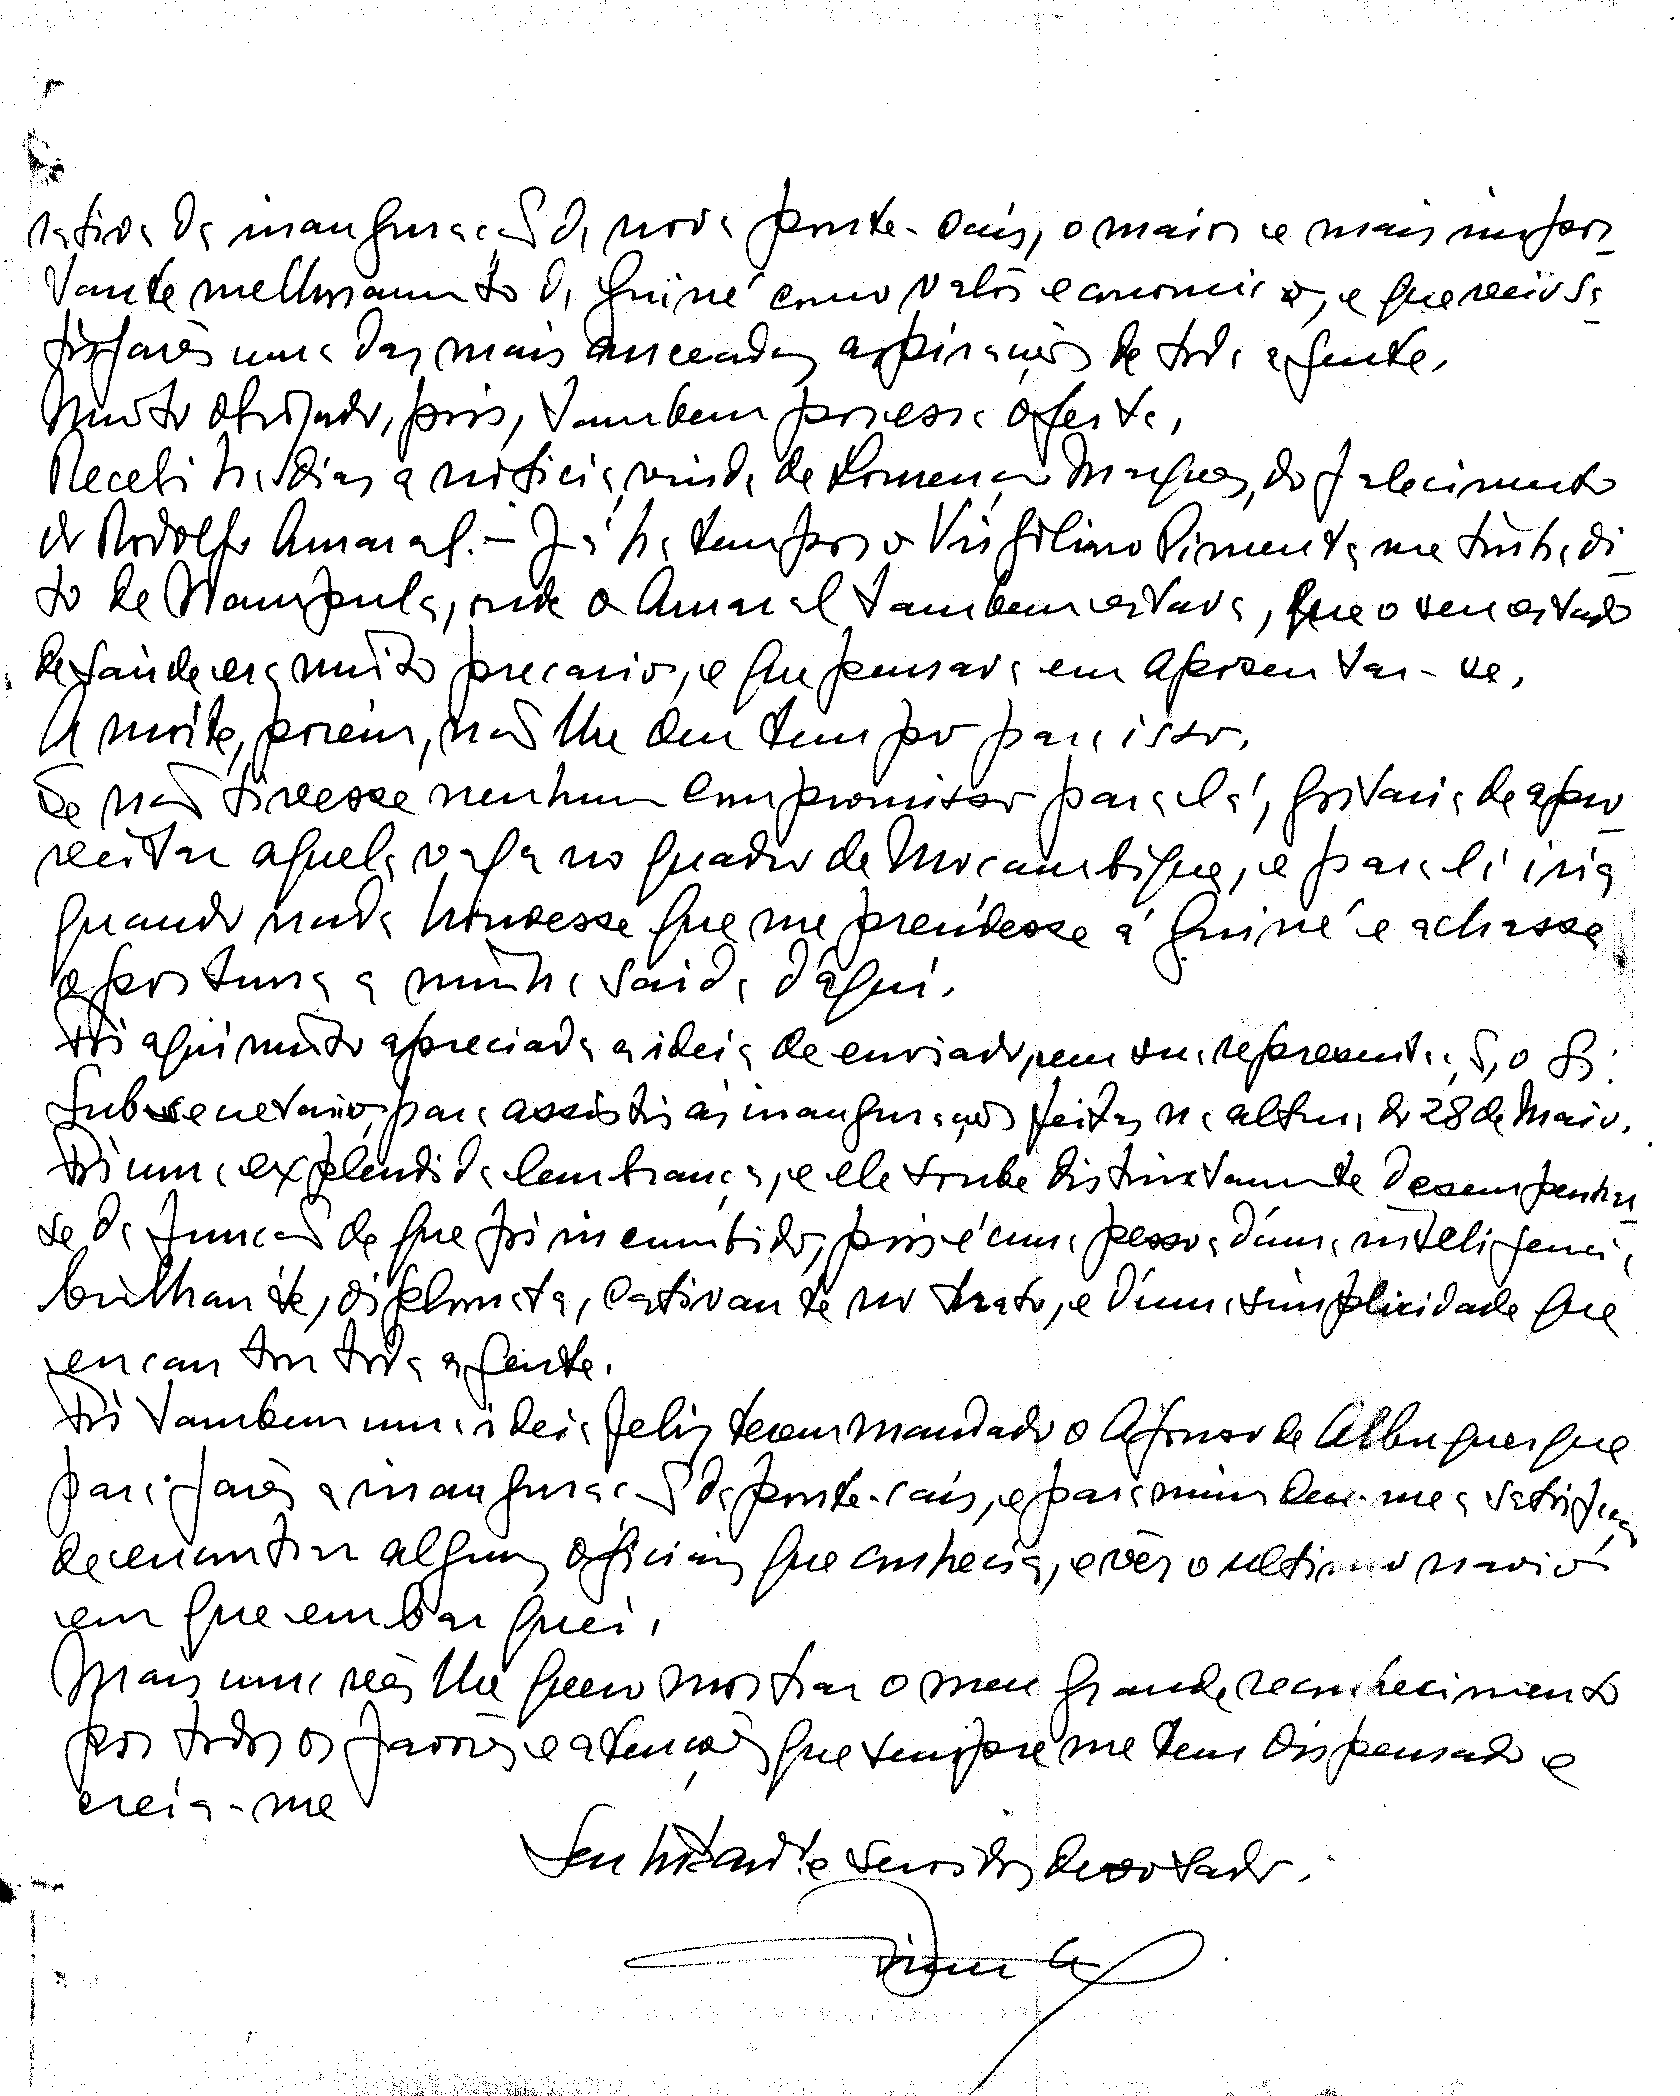 rativa da inauguração da nova ponte-cais, o maior e mais impor-
tante melhoramento da Guiné como valor economico, e que veio sa-
tisfazer uma das mais anceadas aspirações de toda a gente.
Muito obrigado, pois, tambem por essa oferta.
Recebi ha dias a noticia, vinda de Lourenço Marques, do falecimento
do Rodolfo Amaral. - Já ha tempos o Virgilino Pimenta me tinha di-
to de Nampula, onde o Amaral tambem estava, que o seu estado
de saude era muito precario, e que pensava em aposentar-se.
A morte, porém, não lhe deu tempo para isso.
Se não tivesse nenhum compromisso para lá, gostaria de apro-
veitar aquela vaga no quadro de Moçambique, e para lá iria
quando nada houvesse que me prendesse á Guiné e achasse
oportuna a minha saida d'aqui.
Foi aqui muito apreciada a ideia de enviado, em sua representação, o Sr.
Subsecretario, para assistir ás inaugurações feitas na altura do 28 de Maio.
Foi uma explendida lembrança, e ele soube distintamente desempenhar-
se da função de que foi incumbido, pois é uma pessoa d'uma inteligencia
brilhante, diplomata, cativante no trato, e d'uma simplicidade que
encantou toda a gente.
Foi tambem uma ideia feliz terem mandado o Afonso de Albuquerque
para fazer a inauguração da ponte-cais, e para mim deu-me a satisfação
de encontrar alguns oficiais que conhecia, e vêr o ultimo navio
em que embarquei.
Mais uma vez lhe quero mostrar o meu grande reconhecimento
por todos os favores e atenções que sempre me tem dispensado e
creia-me
Seu servidor devotado.